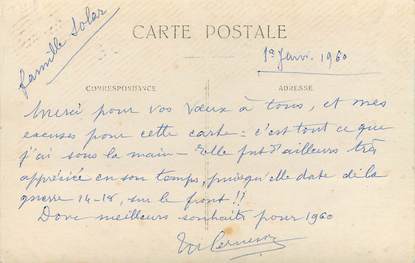 famille Solar
CARTE POSTALE
1er Janv. 1960
CORRESPONDANCE
ADRESSE
Merci pour vos vœux à tous, et mes
excuses pour cette carte = c'est tout ce que
j'ai sous la main - Elle fut d'ailleurs très
appréciée en son temps, puisqu'elle date de la
guerre 14-18, sur le front !!
Donc meilleurs souhaits pour 1960